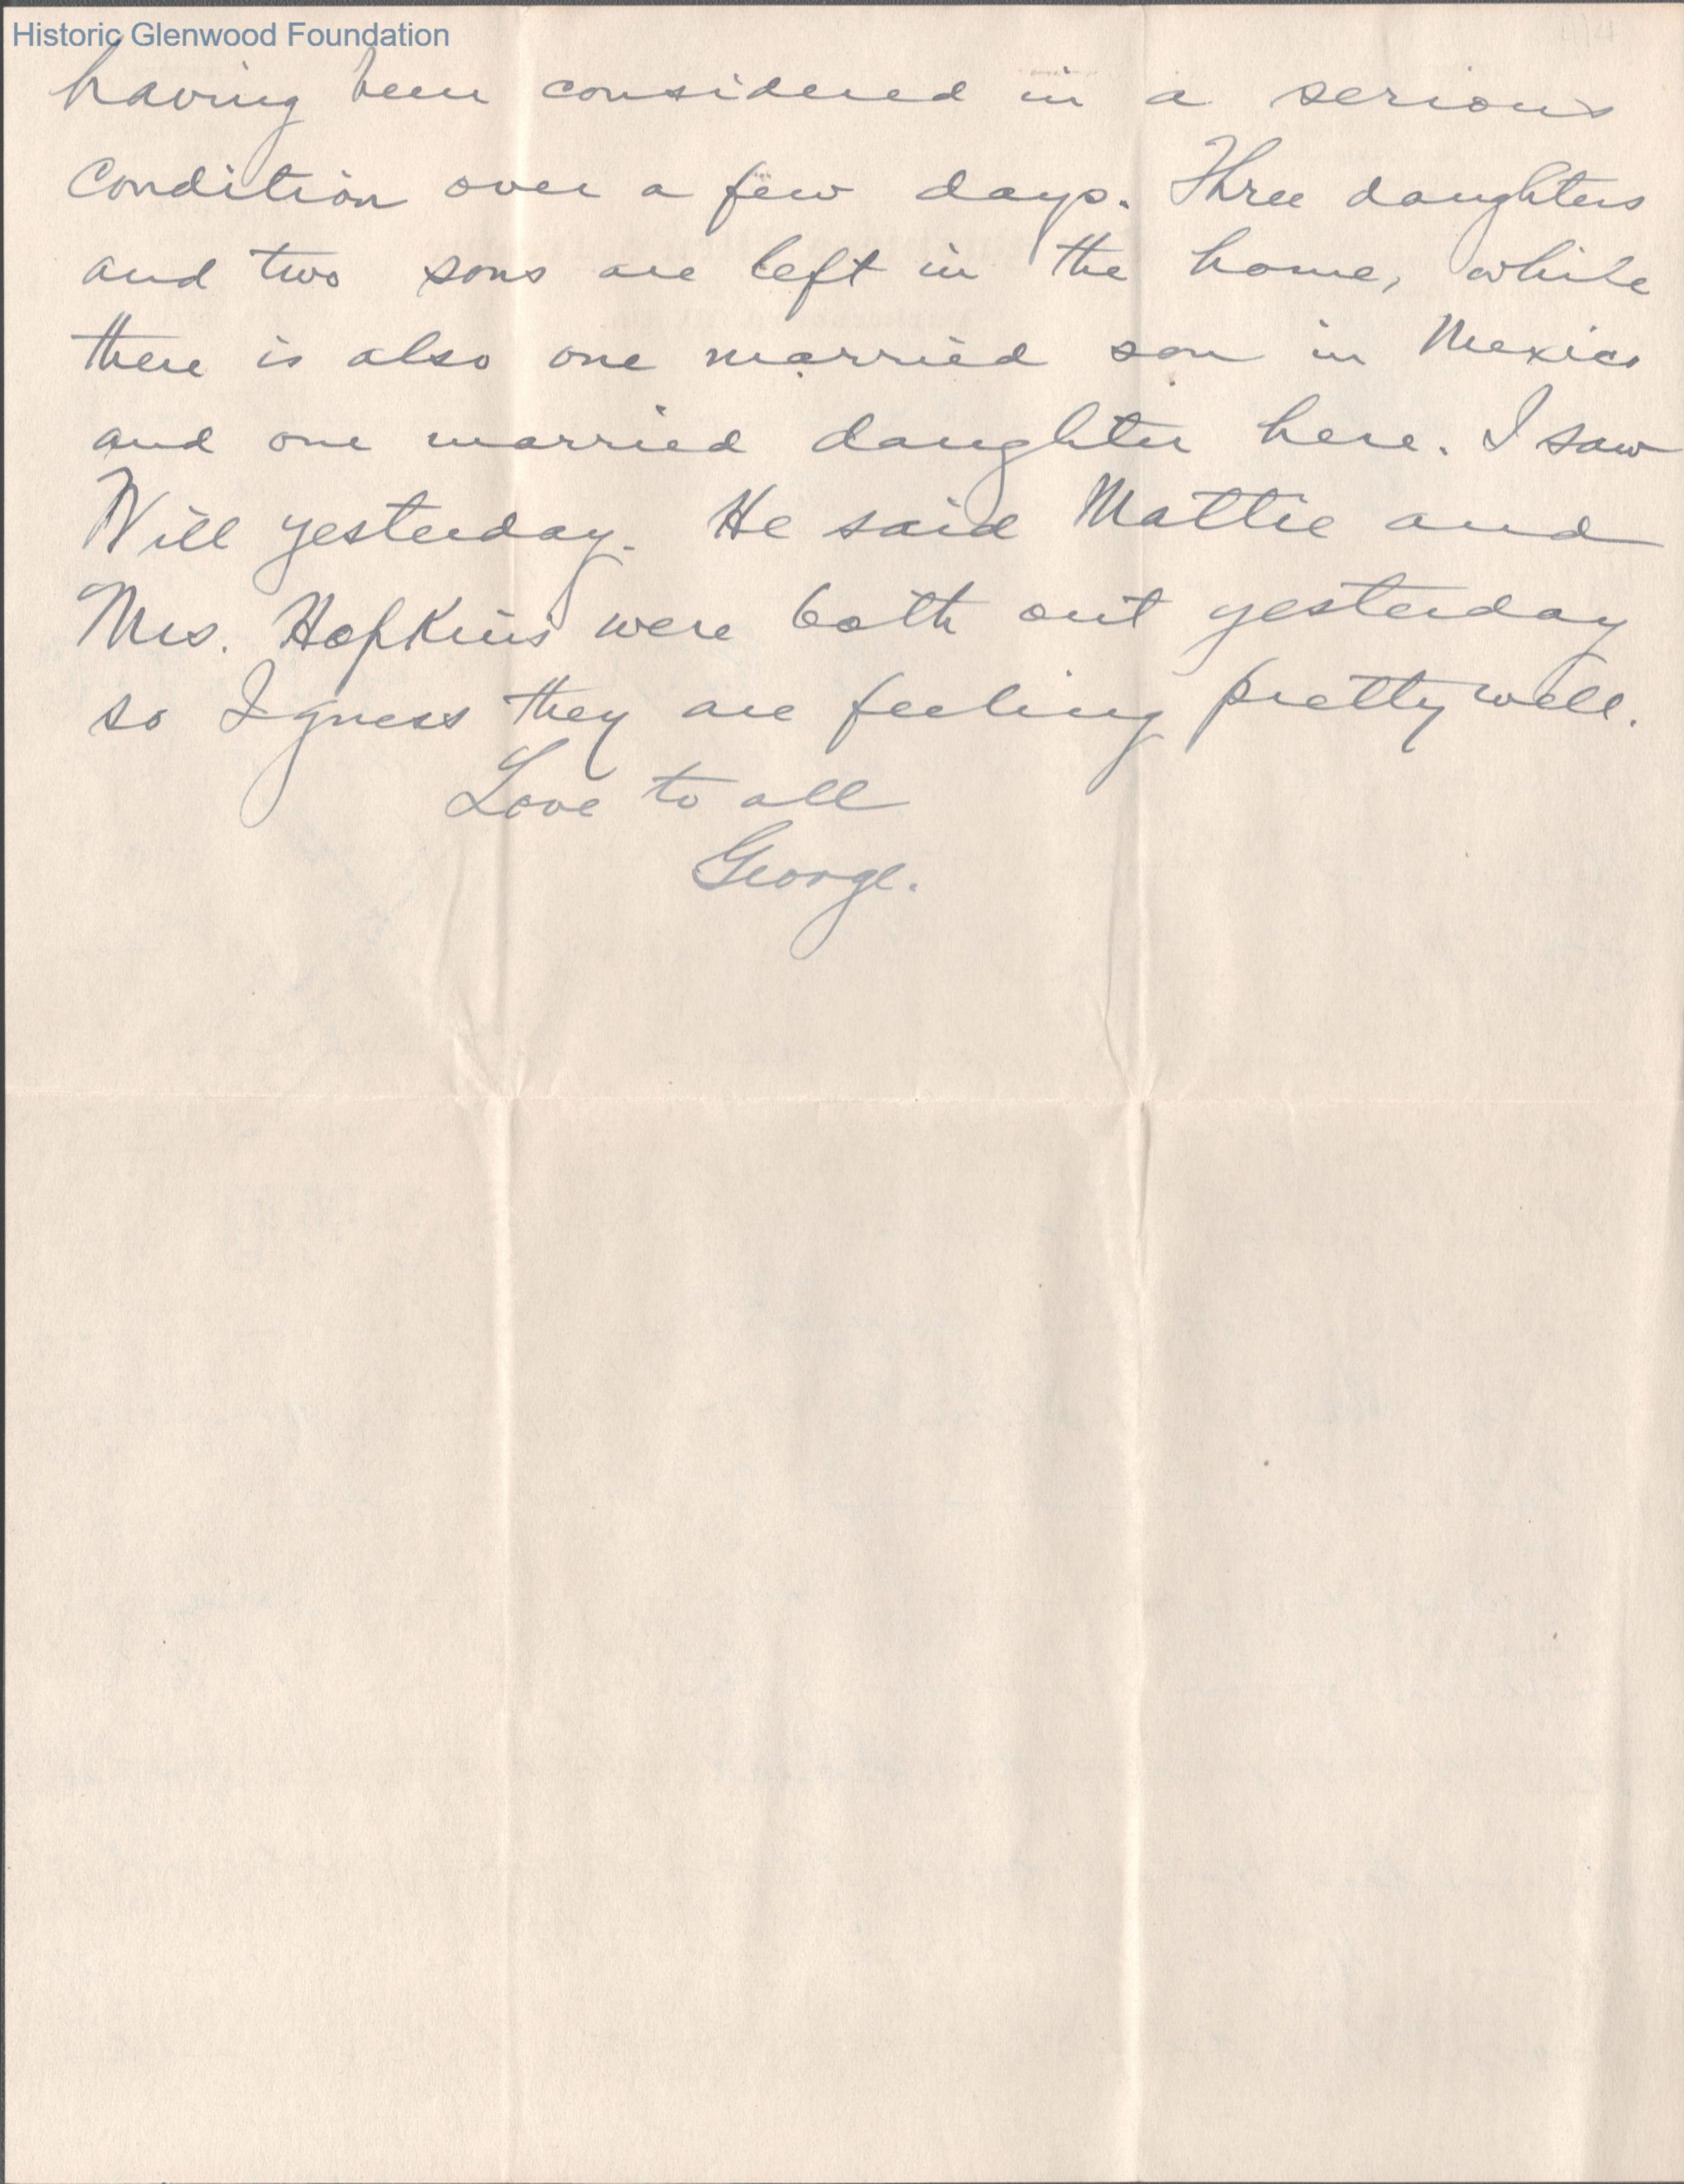 Historic Glenwood Foundation
having been considered in a serious
condition over a few days. Three daughters
and two sons are left in the home, while
there is also one married son in Mexico
and one married daughter here. I saw
Will yesterday. He said Mattie and
Mrs. Hopkins were both out yesterday
so I guess they are feeling pretty well.
Love to all
George.